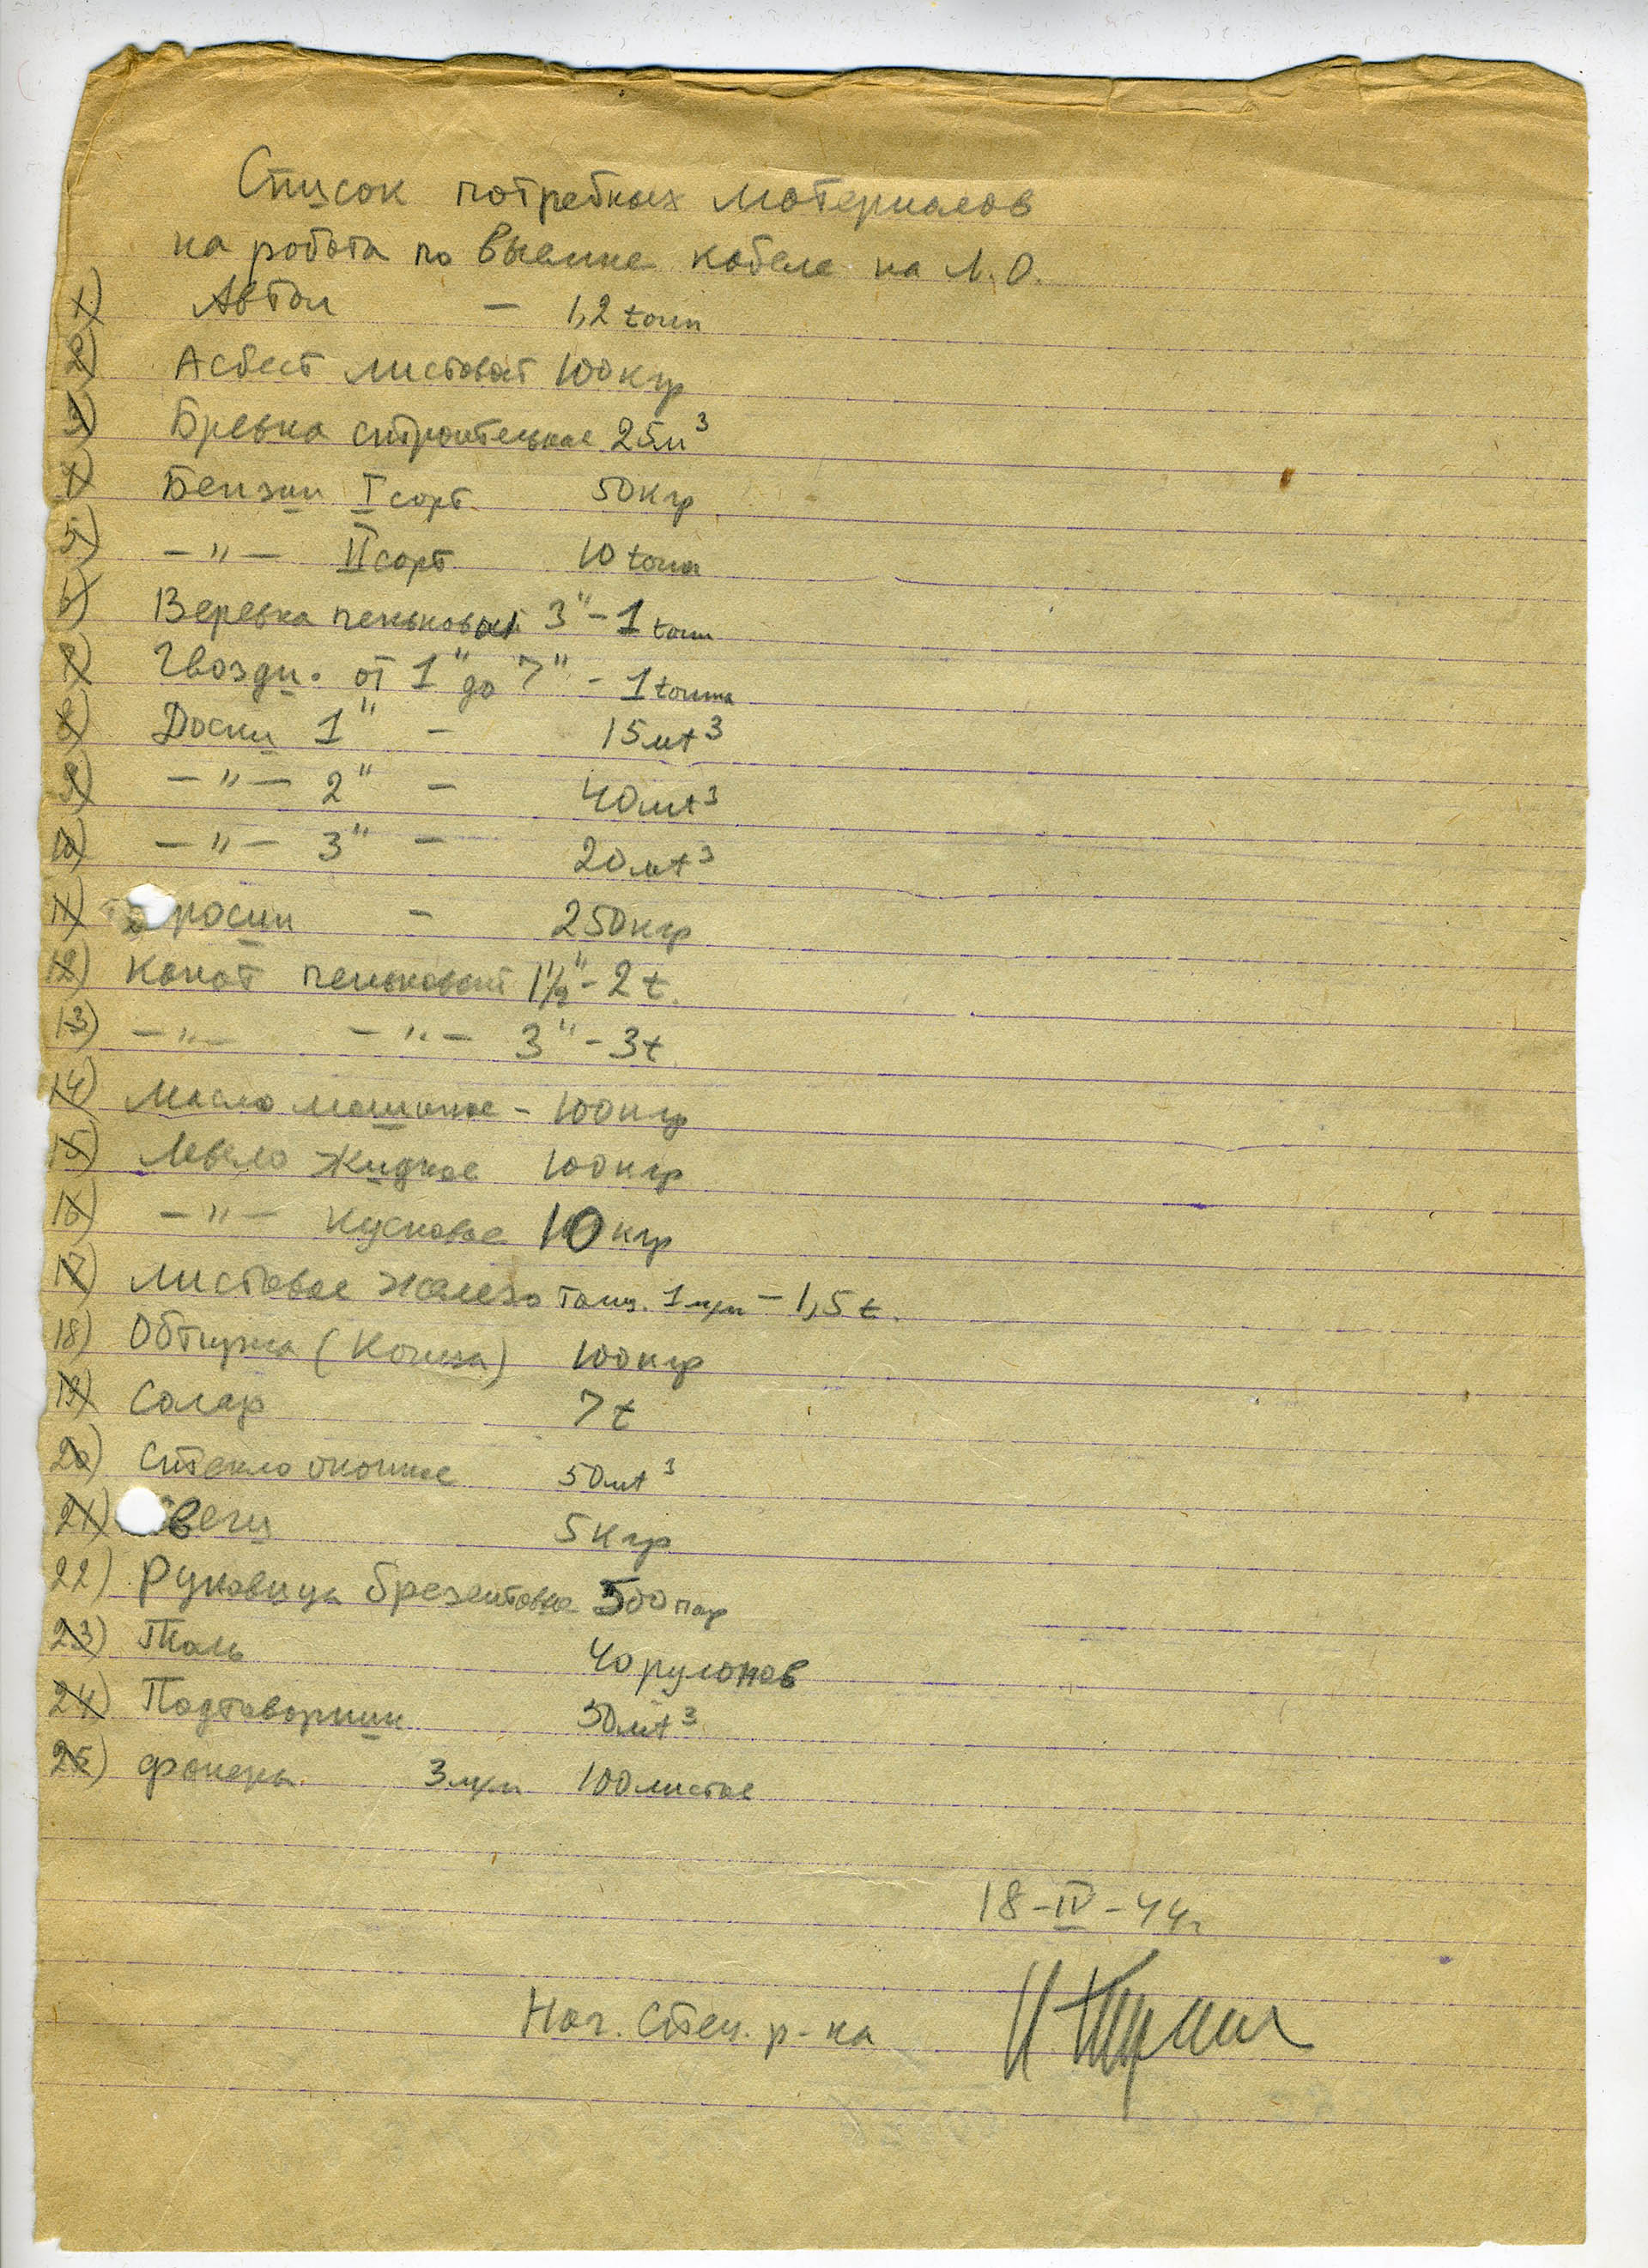 Список потребных материалов
на работа по выемке кабеля на Л.О.
1) Автол - 1,2 tонн
2) Асбест листовой 100 кгр
3) Бревна строительные 25 м³
4) Бензин I сорт. 50 кгр
5) -"- II сорт. 10 tонн
6) Веревка пеньковая 3" - 1 tонн
7) Гвозди. от 1" до 7" - 1 tонна
8) Доски 1" - 15 мt³
9) -"- 2" - 40 мt³
10) -"- 3" - 20 мt³
11) росин - 250 кгр
12) Канат пеньковый 1½" - 2 t.
13) -"- -"- 3" - 3 t.
14) Масло машиное - 100 кгр
15) Мыло жидкое 100 кгр
16) -"- кусковое 10 кгр
17) Листовое железо толщ. 1 м/м - 1,5 t.
18) Обтирка (Концы) 100 кгр
19) Соляр 7 t
20) Стекло оконное 50 мt³
21) Свечи 5 кгр
22) Рукавицы брезентовые 500 пар
23) Толь 40 рулонов
24) Подтоварник 30 мt³
25) фанеры 3 м/м 100 листов
18-IV-44г.
Нач. Стец. р-на